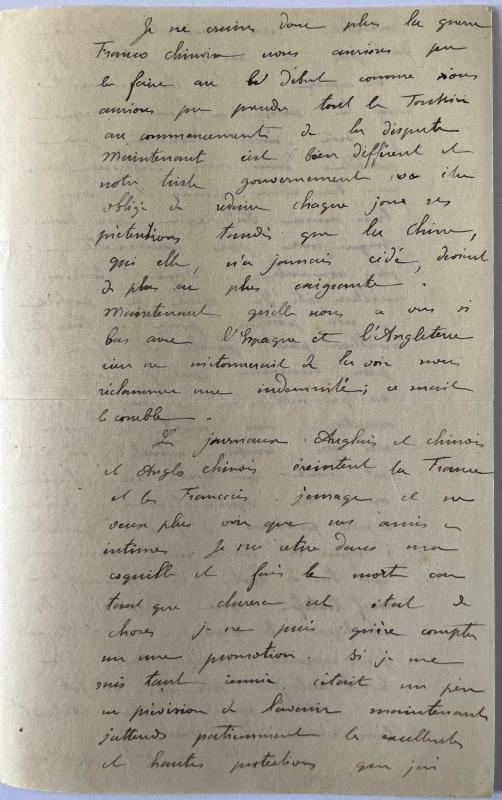 Je ne crains donc plus la guerre
Franco chinoise nous aurions pu
la faire au début comme nous
aurions pu prendre tout le Tonkin
au commencement de la dispute
maintenant c'est bien différent et
notre triste gouvernement va être
obligé de réduire chaque jour ses
prétentions tandis que la Chine,
qui elle, n'a jamais cédé, devient
de plus en plus exigeante.
Maintenant qu'elle nous a vus si
bas avec l'Espagne et l'Angleterre
rien ne m'étonnerait de la voir nous
réclamer une indemnité; ce serait
le comble.
Les journaux Anglais et chinois
et Anglo chinois éreintent la France
et les Français. j'enrage et ne
veux plus voir que nos amis
intimes. Je me retire dans ma
coquille et fais le mort car
tant que durera cet état de
choses je ne puis guère compter
sur une promotion. Si je me
suis tant c'était un peu
en prévision de l'avenir maintenant
j'attends patiemment les excellentes
et hautes protections que j'ai